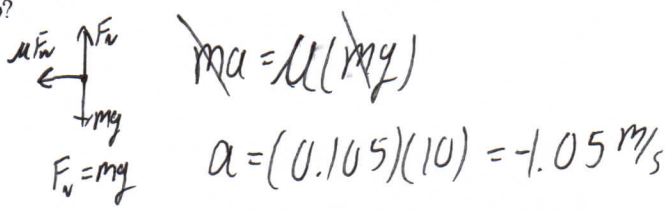 ?
μFₙ
Fₙ
mg
Fₙ = mg
ma = μ(mg)
a = (0.105)(10) = -1.05 m/s